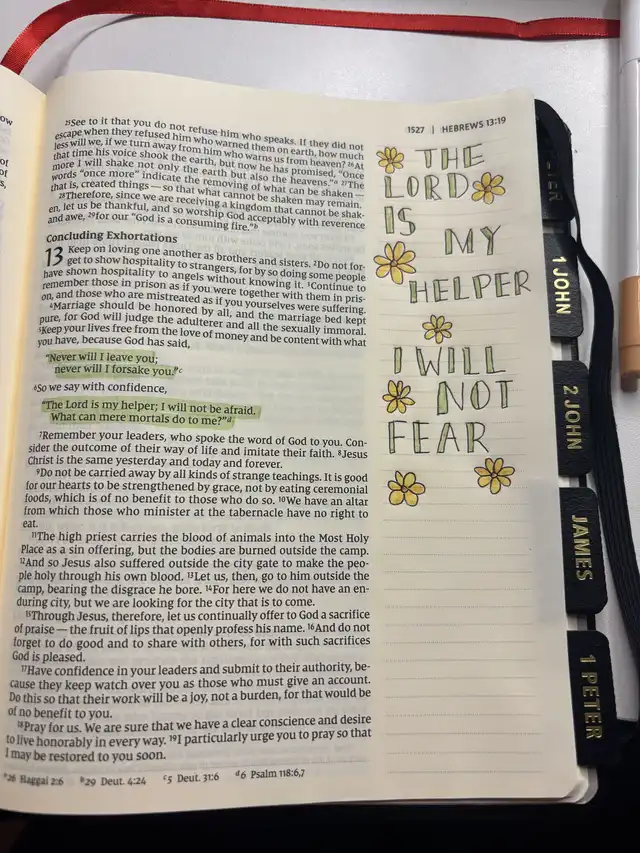 ow
of
of
s,
1527 | HEBREWS 13:19
²⁵See to it that you do not refuse him who speaks. If they did not
escape when they refused him who warned them on earth, how much
less will we, if we turn away from him who warns us from heaven? ²⁶At
that time his voice shook the earth, but now he has promised, “Once
more I will shake not only the earth but also the heavens.”ᵃ ²⁷The
words “once more” indicate the removing of what can be shaken—
that is, created things — so that what cannot be shaken may remain.
²⁸Therefore, since we are receiving a kingdom that cannot be shak-
en, let us be thankful, and so worship God acceptably with reverence
and awe, ²⁹for our “God is a consuming fire.”ᵇ
Concluding Exhortations
13 Keep on loving one another as brothers and sisters. ²Do not for-
get to show hospitality to strangers, for by so doing some people
have shown hospitality to angels without knowing it. ³Continue to
remember those in prison as if you were together with them in pris-
on, and those who are mistreated as if you yourselves were suffering.
⁴Marriage should be honored by all, and the marriage bed kept
pure, for God will judge the adulterer and all the sexually immoral.
⁵Keep your lives free from the love of money and be content with what
you have, because God has said,
“Never will I leave you;
never will I forsake you.”ᶜ
⁶So we say with confidence,
“The Lord is my helper; I will not be afraid.
What can mere mortals do to me?”ᵈ
⁷Remember your leaders, who spoke the word of God to you. Con-
sider the outcome of their way of life and imitate their faith. ⁸Jesus
Christ is the same yesterday and today and forever.
⁹Do not be carried away by all kinds of strange teachings. It is good
for our hearts to be strengthened by grace, not by eating ceremonial
foods, which is of no benefit to those who do so. ¹⁰We have an altar
from which those who minister at the tabernacle have no right to
eat.
¹¹The high priest carries the blood of animals into the Most Holy
Place as a sin offering, but the bodies are burned outside the camp.
¹²And so Jesus also suffered outside the city gate to make the peo-
ple holy through his own blood. ¹³Let us, then, go to him outside the
camp, bearing the disgrace he bore. ¹⁴For here we do not have an en-
during city, but we are looking for the city that is to come.
¹⁵Through Jesus, therefore, let us continually offer to God a sacrifice
of praise — the fruit of lips that openly profess his name. ¹⁶And do not
forget to do good and to share with others, for with such sacrifices
God is pleased.
¹⁷Have confidence in your leaders and submit to their authority, be-
cause they keep watch over you as those who must give an account.
Do this so that their work will be a joy, not a burden, for that would be
of no benefit to you.
¹⁸Pray for us. We are sure that we have a clear conscience and desire
to live honorably in every way. ¹⁹I particularly urge you to pray so that
I may be restored to you soon.
ᵃ26 Haggai 2:6 ᵇ29 Deut. 4:24 ᶜ5 Deut. 31:6 ᵈ6 Psalm 118:6,7
THE
LORD
IS
MY
HELPER
I WILL
NOT
FEAR
1 JOHN
2 JOHN
JAMES
1 PETER